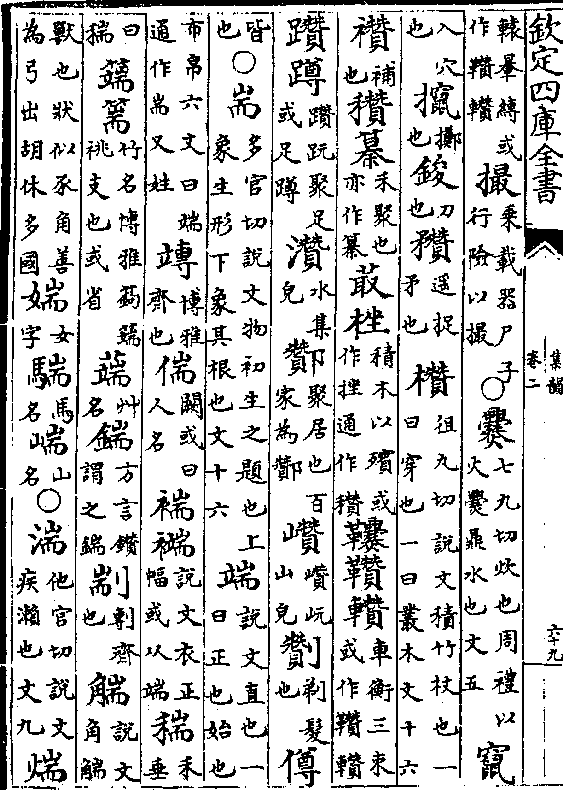 欽定四庫全書
集韻
卷二
六十九
轅畢縛或作䡽撮乘載器尸子行險以撮○爨七丸切炊也周禮以火爨鼎水也文五竄
入穴也攛擲也鋑刀也䂎遥捉矛也欑徂丸切說文積竹杖也一曰穿也一曰叢木文十六
襸補也穳禾聚也亦作纂菆積木以殯或作挫通作穳車衡三束或作
躦蹲躦跧聚足或足蹲灒水集皃酇聚居也百家為酇巑巑岏山皃劗剃髮也僔
皆也○耑多官切說文物初生之題也上象生形下象其根也文十六端說文直也一曰正也始也
布帛六丈曰端通作耑又姓竱博雅齊也偳闕或曰人名褍說文衣正幅或以端禾垂
曰竹名博雅祧支也或省艸名鍴方言鑽謂之鍴剬剸齊也說文角
獸也狀似豕角善為弓出胡休多國媏女字馬名山名○湍他官切說文疾瀨也文九煓